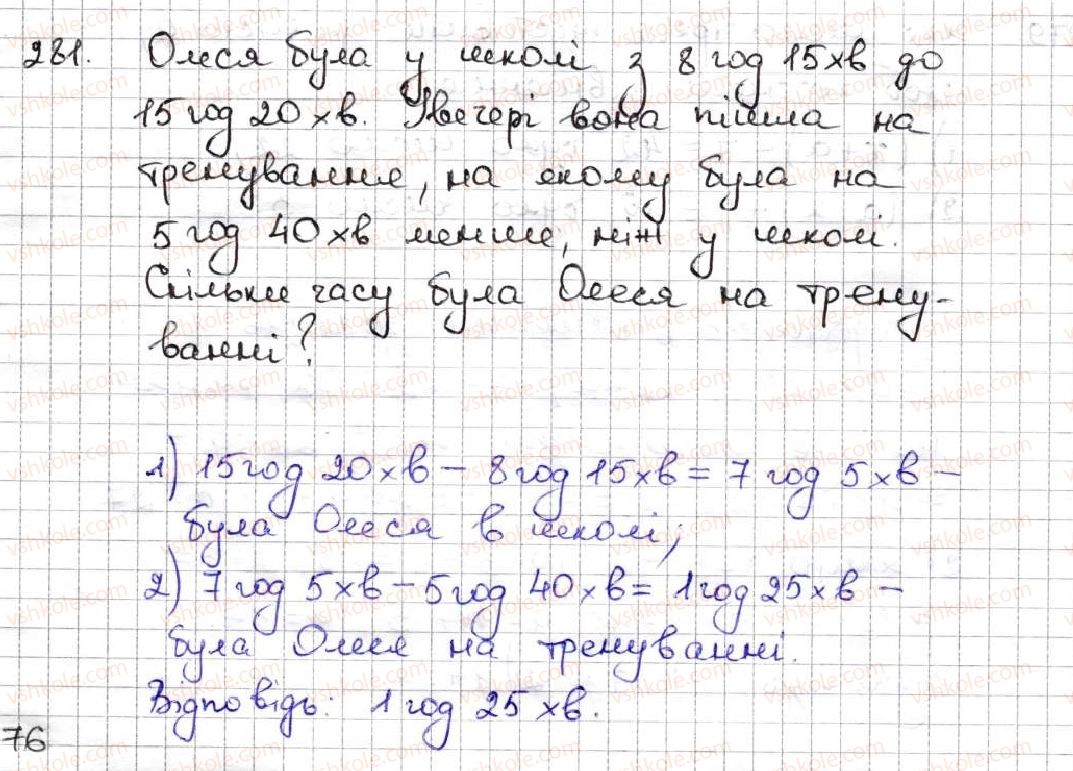 281. Олеся була у школі з 8 год 15 хв до
15 год 20 хв. Увечері вона пішла на
тренування, на якому була на
5 год 40 хв менше, ніж у школі.
Скільки часу була Олеся на трену-
ванні?
1) 15 год 20 хв - 8 год 15 хв = 7 год 5 хв -
була Олеся в школі;
2) 7 год 5 хв - 5 год 40 хв = 1 год 25 хв -
була Олеся на тренуванні.
Відповідь: 1 год 25 хв.
76
vshkole.com